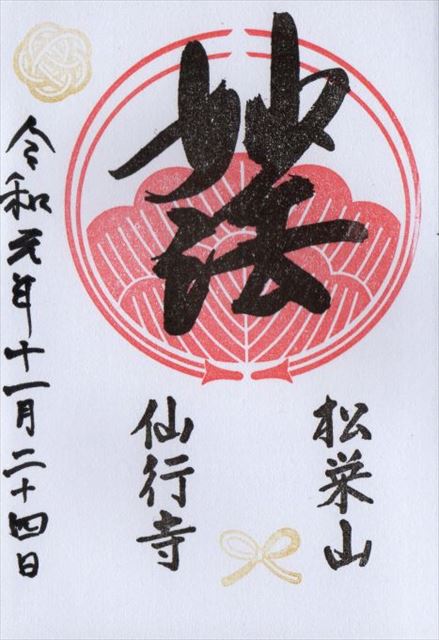 妙法
松栄山
仙行寺
令和元年十一月二十四日